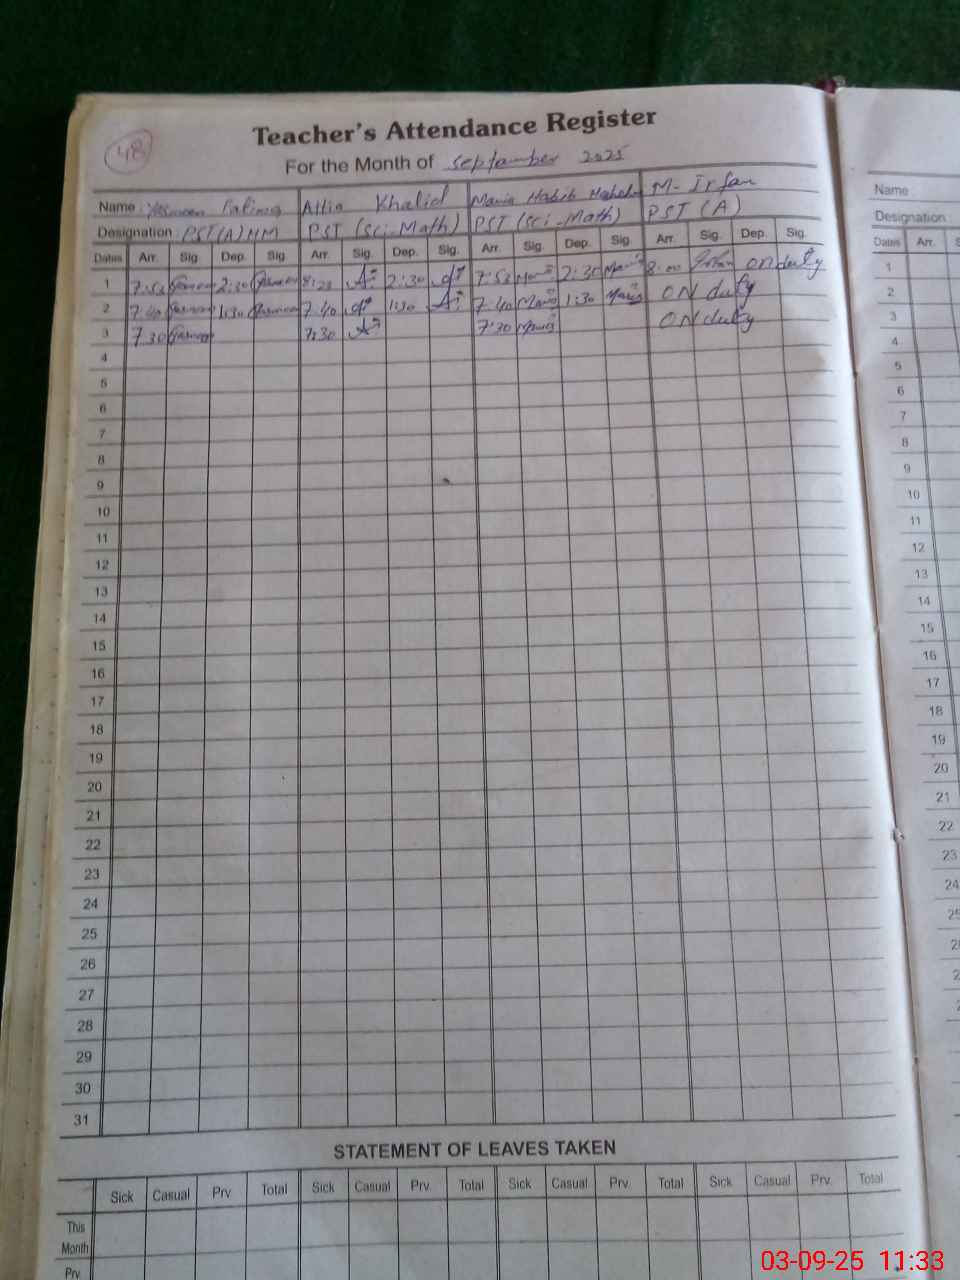 48
Teacher's Attendance Register
For the Month of September 2025
Name: Yasmeen Fatima Attia Khalid Maria Habib M- Irfan
Designation: PST(A) HM PST (Sci-Math) PST (Sci-Math) PST (A)
Dates Arr. Sig Dep. Sig. Arr. Sig. Dep. Sig. Arr. Sig. Dep. Sig. Arr. Sig. Dep. Sig.
1 7:53 Yasmeen 2:30 Yasmeen 8:28 2:30 7:53 Maria 2:30 Maria 8:00 Irfan on duty
2 7:40 Yasmeen 1:30 Yasmeen 7:40 1:30 7:40 Maria 1:30 Maria ON duty
3 7:30 Yasmeen 7:30 7:30 Maria ON duty
4
5
6
7
8
9
10
11
12
13
14
15
16
17
18
19
20
21
22
23
24
25
26
27
28
29
30
31
STATEMENT OF LEAVES TAKEN
Sick Casual Prv. Total Sick Casual Prv. Total Sick Casual Prv. Total Sick Casual Prv. Total
This
Month
Prv
Name
Designation
Dates Arr. S
1
2
3
4
5
6
7
8
9
10
11
12
13
14
15
16
17
18
19
20
21
22
23
24
25
03-09-25 11:33